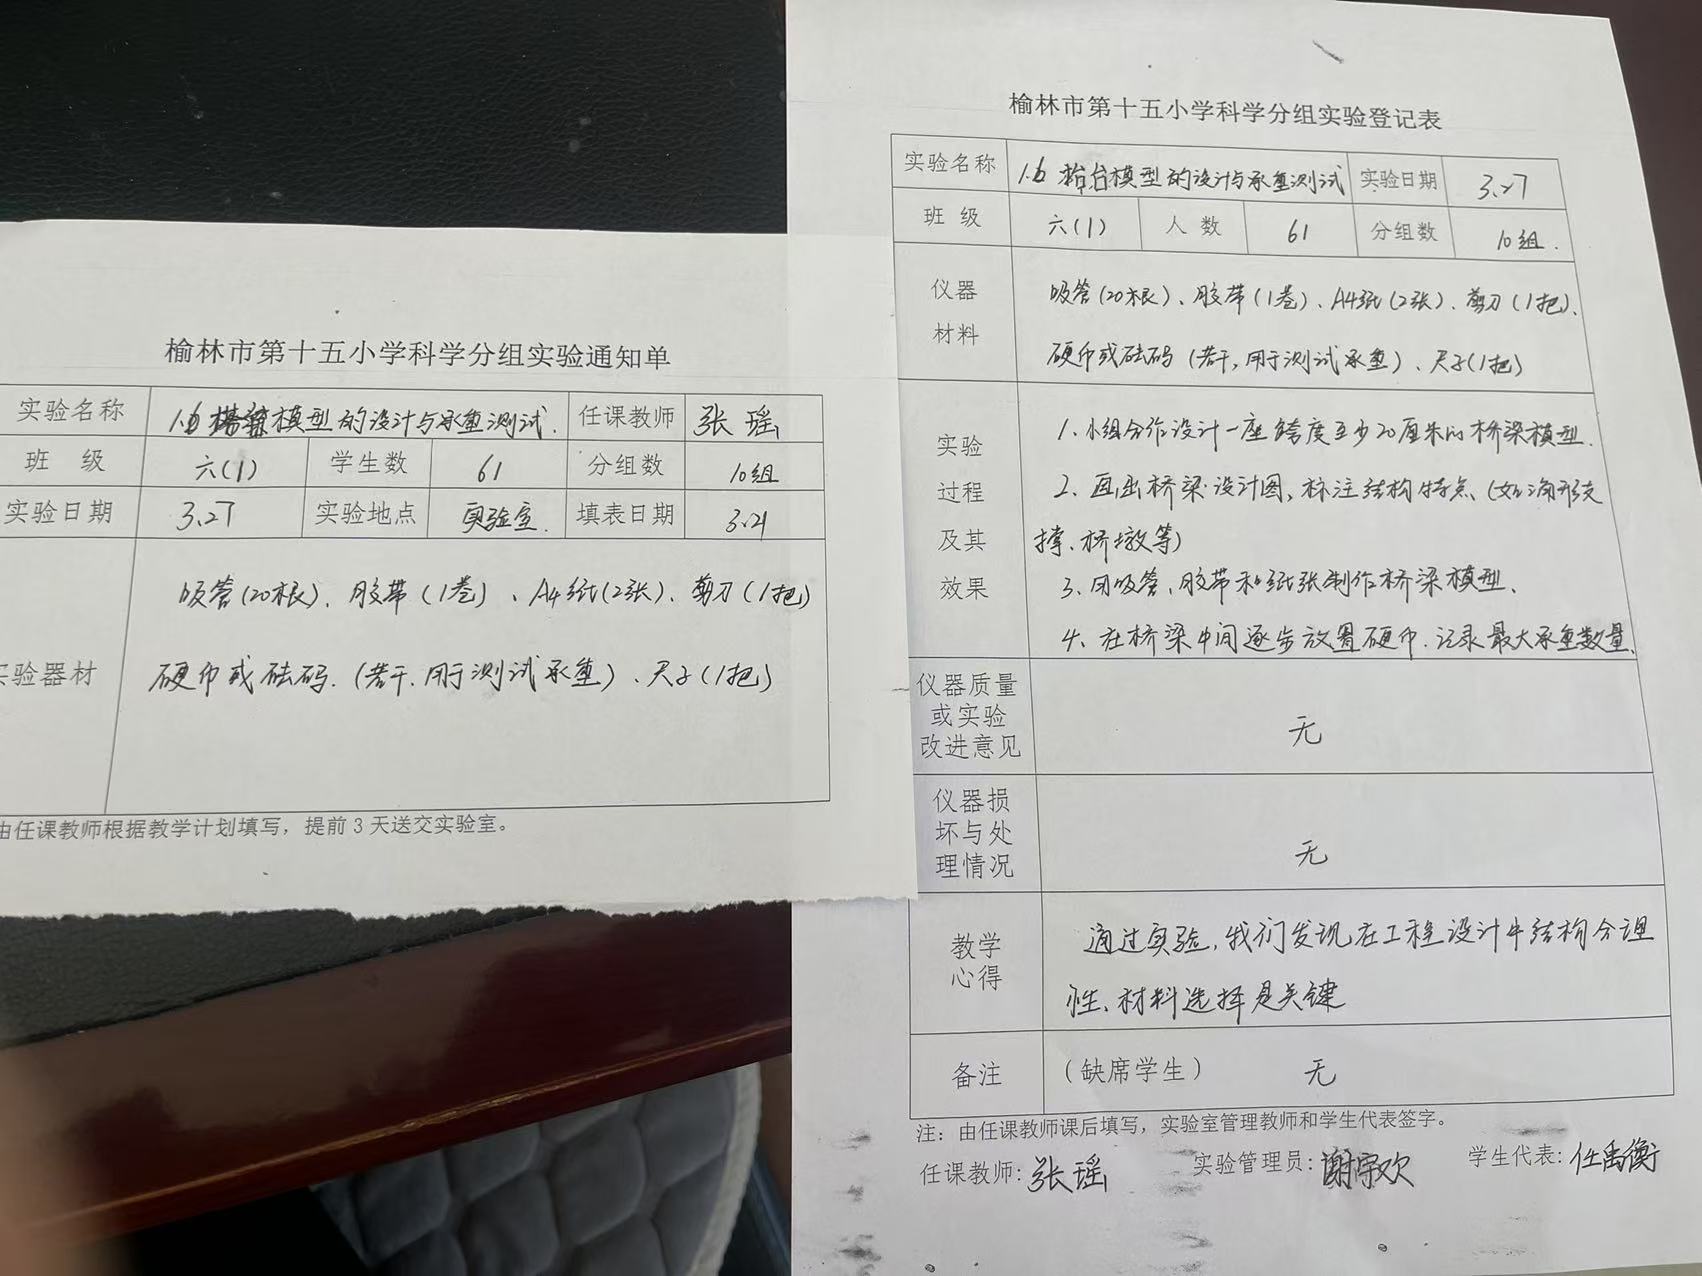 榆林市第十五小学科学分组实验通知单
实验名称 1.6 模型的设计与承重测试. 任课教师 张瑶
班 级 六(1) 学生数 61 分组数 10组
实验日期 3.27 实验地点 实验室. 填表日期 3.21
吸管(20根)、胶带(1卷)、A4纸(2张)、剪刀(1把)
实验器材 硬币或砝码.(若干.用于测试承重)、尺子(1把)
由任课教师根据教学计划填写，提前3天送交实验室。
榆林市第十五小学科学分组实验登记表
实验名称 1.6 模型的设计与承重测试 实验日期 3.27
班 级 六(1) 人 数 61 分组数 10组.
仪器 吸管(20根)、胶带(1卷)、A4纸(2张)、剪刀(1把)、
材料 硬币或砝码(若干,用于测试承重)、尺子(1把)
实验 1、小组合作设计一座跨度至少20厘米的桥梁模型.
过程 2、画出桥梁设计图,标注结构特点(如三角形支
及其 撑、桥墩等)
效果 3、用吸管、胶带和纸张制作桥梁模型.
4、在桥梁中间逐步放置硬币.记录最大承重数量.
仪器质量
或实验 无
改进意见
仪器损
坏与处 无
理情况
教学 通过实验,我们发现在工程设计中结构合理
心得 性、材料选择是关键
备注 (缺席学生) 无
注：由任课教师课后填写，实验室管理教师和学生代表签字。
任课教师:张瑶 实验管理员:谢宗欢 学生代表:任禹衡